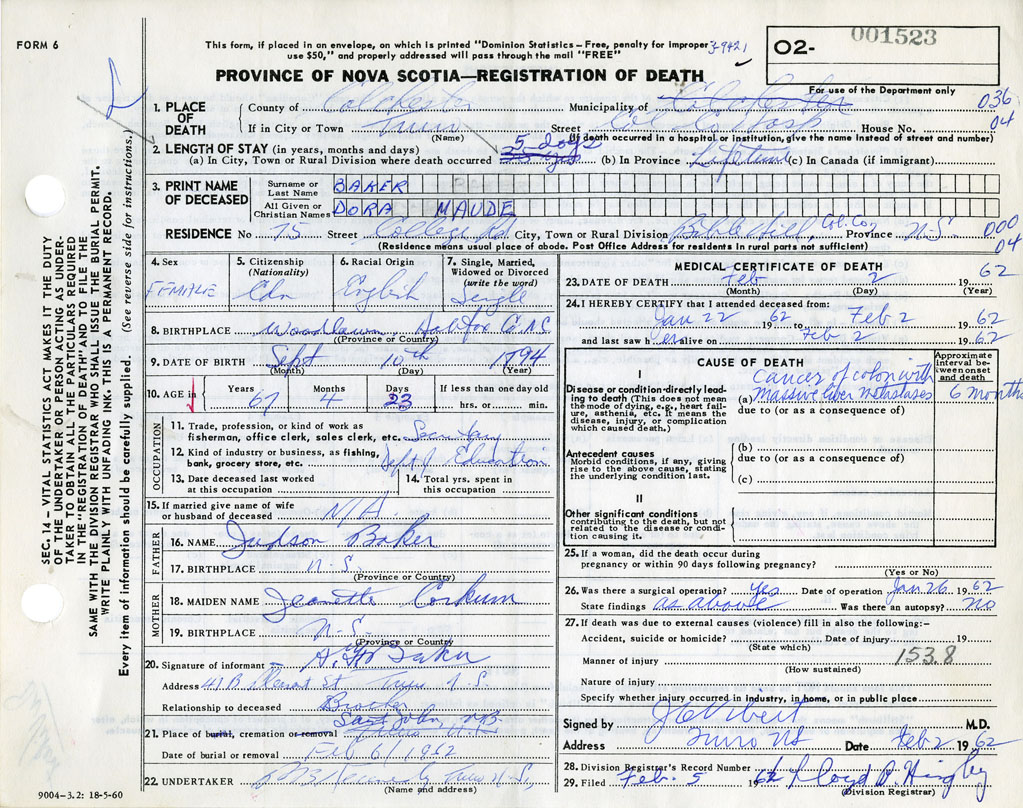 FORM 6
This form, if placed in an envelope, on which is printed "Dominion Statistics – Free, penalty for improper
use $50," and properly addressed will pass through the mail "FREE"
3-9421
O2-
001523
PROVINCE OF NOVA SCOTIA—REGISTRATION OF DEATH
For use of the Department only
1. PLACE OF DEATH
County of Colchester Municipality of Colchester 036
If in City or Town Truro Street Col. Co. Hosp House No. 04
(Name) (If death occurred in a hospital or institution, give the name instead of street and number)
2. LENGTH OF STAY (in years, months and days) 5 days
(a) In City, Town or Rural Division where death occurred (b) In Province Lifetime (c) In Canada (if immigrant)
3. PRINT NAME OF DECEASED
Surname or Last Name BAKER
All Given or Christian Names DORA MAUDE
RESIDENCE No 75 Street College Rd City, Town or Rural Division Bible Hill, Col. Co. Province N.S. 000
04
(Residence means usual place of abode. Post Office Address for residents in rural parts not sufficient)
4. Sex
FEMALE
5. Citizenship
(Nationality)
Cdn
6. Racial Origin
English
7. Single, Married, Widowed or Divorced
(write the word)
Single
8. BIRTHPLACE Woodlawn, Halifax Co. N.S.
(Province or Country)
9. DATE OF BIRTH Sept 10th 1894
(Month) (Day) (Year)
10. AGE in
Years 67
Months 4
Days 23
If less than one day old
hrs. or min.
OCCUPATION
11. Trade, profession, or kind of work as
fisherman, office clerk, sales clerk, etc. Secretary
12. Kind of industry or business, as fishing,
bank, grocery store, etc. Dept of Education
13. Date deceased last worked
at this occupation
14. Total yrs. spent in
this occupation
15. If married give name of wife
or husband of deceased N/A.
FATHER
16. NAME Judson Baker
17. BIRTHPLACE N.S.
(Province or Country)
MOTHER
18. MAIDEN NAME Jeanette Corkum
19. BIRTHPLACE N.S.
(Province or Country)
20. Signature of informant Baker
Address 41 B Pleasant St Truro N.S.
Relationship to deceased Brother
Saint John, N.B.
21. Place of burial, cremation or removal
Date of burial or removal Feb 6/1962
22. UNDERTAKER Truro N.S.
(Name and address)
9004-3.2: 18-5-60
MEDICAL CERTIFICATE OF DEATH
23. DATE OF DEATH Feb 2 1962
(Month) (Day) (Year)
24. I HEREBY CERTIFY that I attended deceased from:
Jan 22 1962 to Feb 2 1962
and last saw her alive on Feb 2 1962
CAUSE OF DEATH
Approximate interval between onset and death
I
Disease or condition directly leading to death (This does not mean the mode of dying, e.g., heart failure, asthenia, etc. It means the disease, injury, or complication which caused death.)
Cancer of colon with
(a) massive liver metastases 6 months
due to (or as a consequence of)
Antecedent causes
Morbid conditions, if any, giving rise to the above cause, stating the underlying condition last.
(b)
due to (or as a consequence of)
(c)
II
Other significant conditions
contributing to the death, but not related to the disease or condition causing it.
25. If a woman, did the death occur during
pregnancy or within 90 days following pregnancy?
(Yes or No)
26. Was there a surgical operation? yes Date of operation Jan 26 1962
State findings as above Was there an autopsy? no
27. If death was due to external causes (violence) fill in also the following:-
Accident, suicide or homicide? Date of injury 19
(State which)
Manner of injury 153.8
(How sustained)
Nature of injury
Specify whether injury occurred in industry, in home, or in public place
Signed by M.D.
Address Truro NS Date Feb 2 1962
28. Division Registrar's Record Number
29. Filed Feb. 5 1962
(Division Registrar)
SEC. 14 – VITAL STATISTICS ACT MAKES IT THE DUTY
OF THE UNDERTAKER OR PERSON ACTING AS UNDER-
TAKER "TO OBTAIN ALL THE PARTICULARS REQUIRED
IN THE "REGISTRATION OF DEATH" AND TO FILE THE
SAME WITH THE DIVISION REGISTRAR WHO SHALL ISSUE THE BURIAL PERMIT.
WRITE PLAINLY WITH UNFADING INK. THIS IS A PERMANENT RECORD.
Every item of information should be carefully supplied. (See reverse side for instructions.)